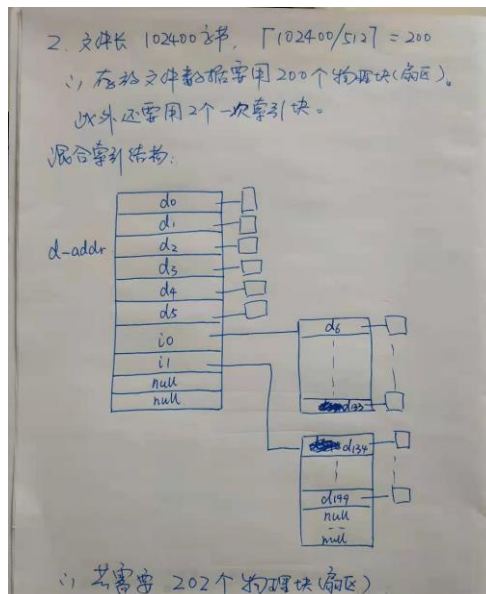 2. 文件长 102400字节, ⌈102400/512⌉ = 200
∴ 存放文件数据要用200个物理块(扇区)。
此外还要用2个一次索引块。
混合索引结构:
d-addr
d0
d1
d2
d3
d4
d5
i0
i1
null
null
d6
d133
d134
d199
null
null
∴ 共需要 202个物理块(扇区)